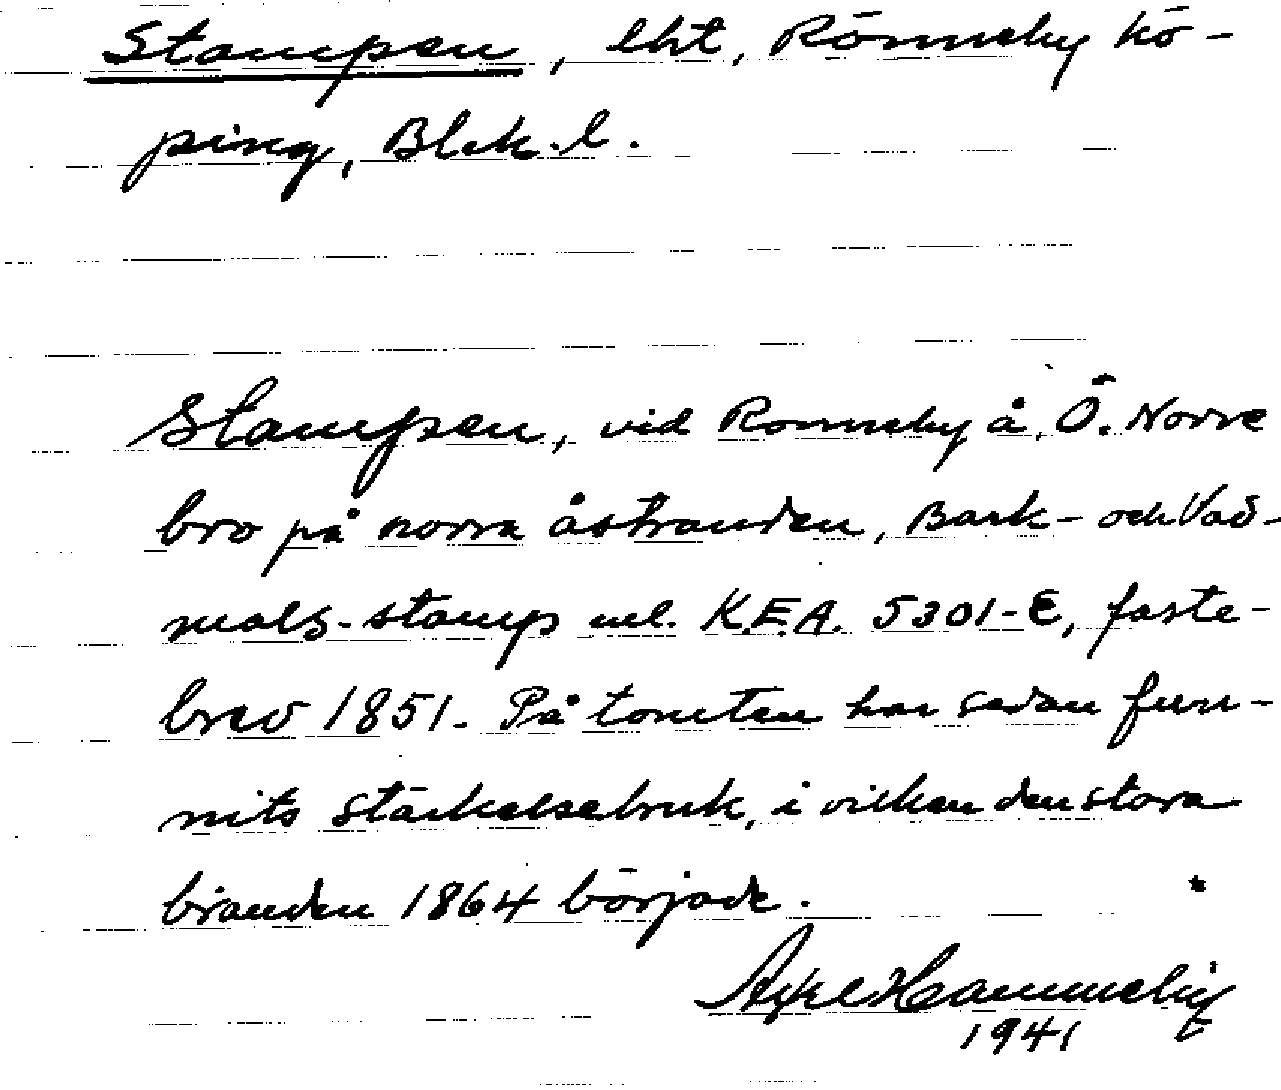 Stampen, lht, Rönneby kö-
ping, Blek. l.
Stampen, vid Ronneby å, Ö. Norre
bro på norra åstranden, Bark- och Vad-
mals-stamp enl. K.E.A. 5301-E, faste-
brev 1851. På tomten har sedan fun-
nits stärkelsebruk, i vilken den stora
branden 1864 började.
Axel
1941